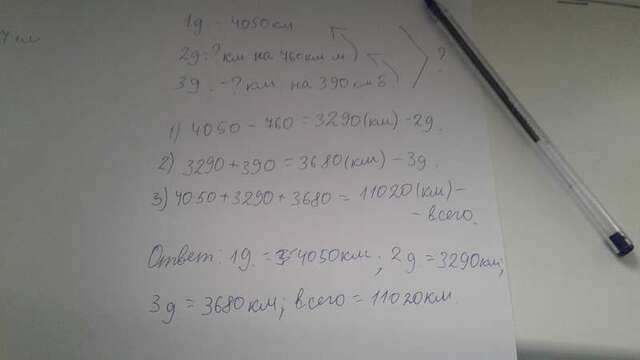 1д - 4050км
2д - ? км на 760км м
?
3д. - ? км. на 390 км б
1) 4050 - 760 = 3290(км) - 2д.
2) 3290 + 390 = 3680(км) - 3д.
3) 4050 + 3290 + 3680 = 11020(км) -
- всего.
Ответ: 1д. = 4050км; 2д = 3290км;
3д = 3680км; всего = 11020км.